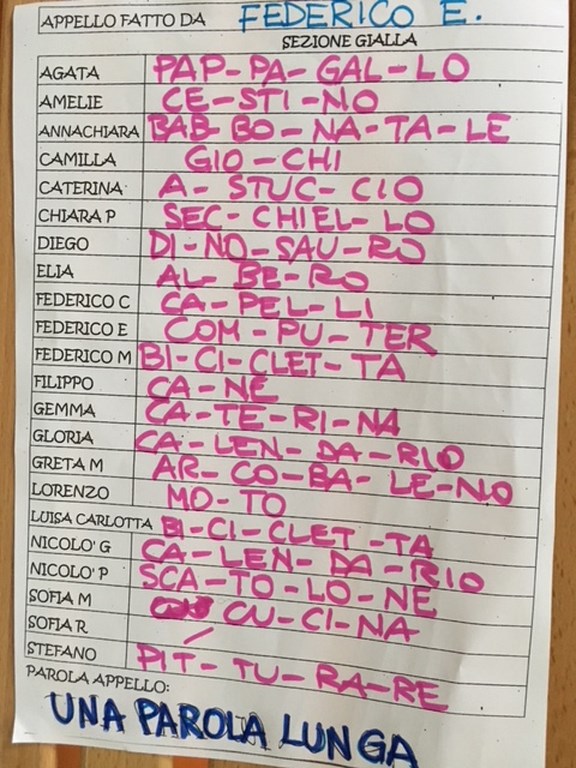 APPELLO FATTO DA FEDERICO E.
SEZIONE GIALLA
AGATA PAP-PA-GAL-LO
AMELIE CE-STI-NO
ANNACHIARA BAB-BO-NA-TA-LE
CAMILLA GIO-CHI
CATERINA A-STUC-CIO
CHIARA P SEC-CHIEL-LO
DIEGO DI-NO-SAU-RO
ELIA AL-BE-RO
FEDERICO C CA-PEL-LI
FEDERICO E COM-PU-TER
FEDERICO M BI-CI-CLET-TA
FILIPPO CA-NE
GEMMA CA-TE-RI-NA
GLORIA CA-LEN-DA-RIO
GRETA M AR-CO-BA-LE-NO
LORENZO MO-TO
LUISA CARLOTTA BI-CI-CLET-TA
NICOLO' G CA-LEN-DA-RIO
NICOLO' P SCA-TO-LO-NE
SOFIA M CU-CI-NA
SOFIA R /
STEFANO PIT-TU-RA-RE
PAROLA APPELLO:
UNA PAROLA LUNGA